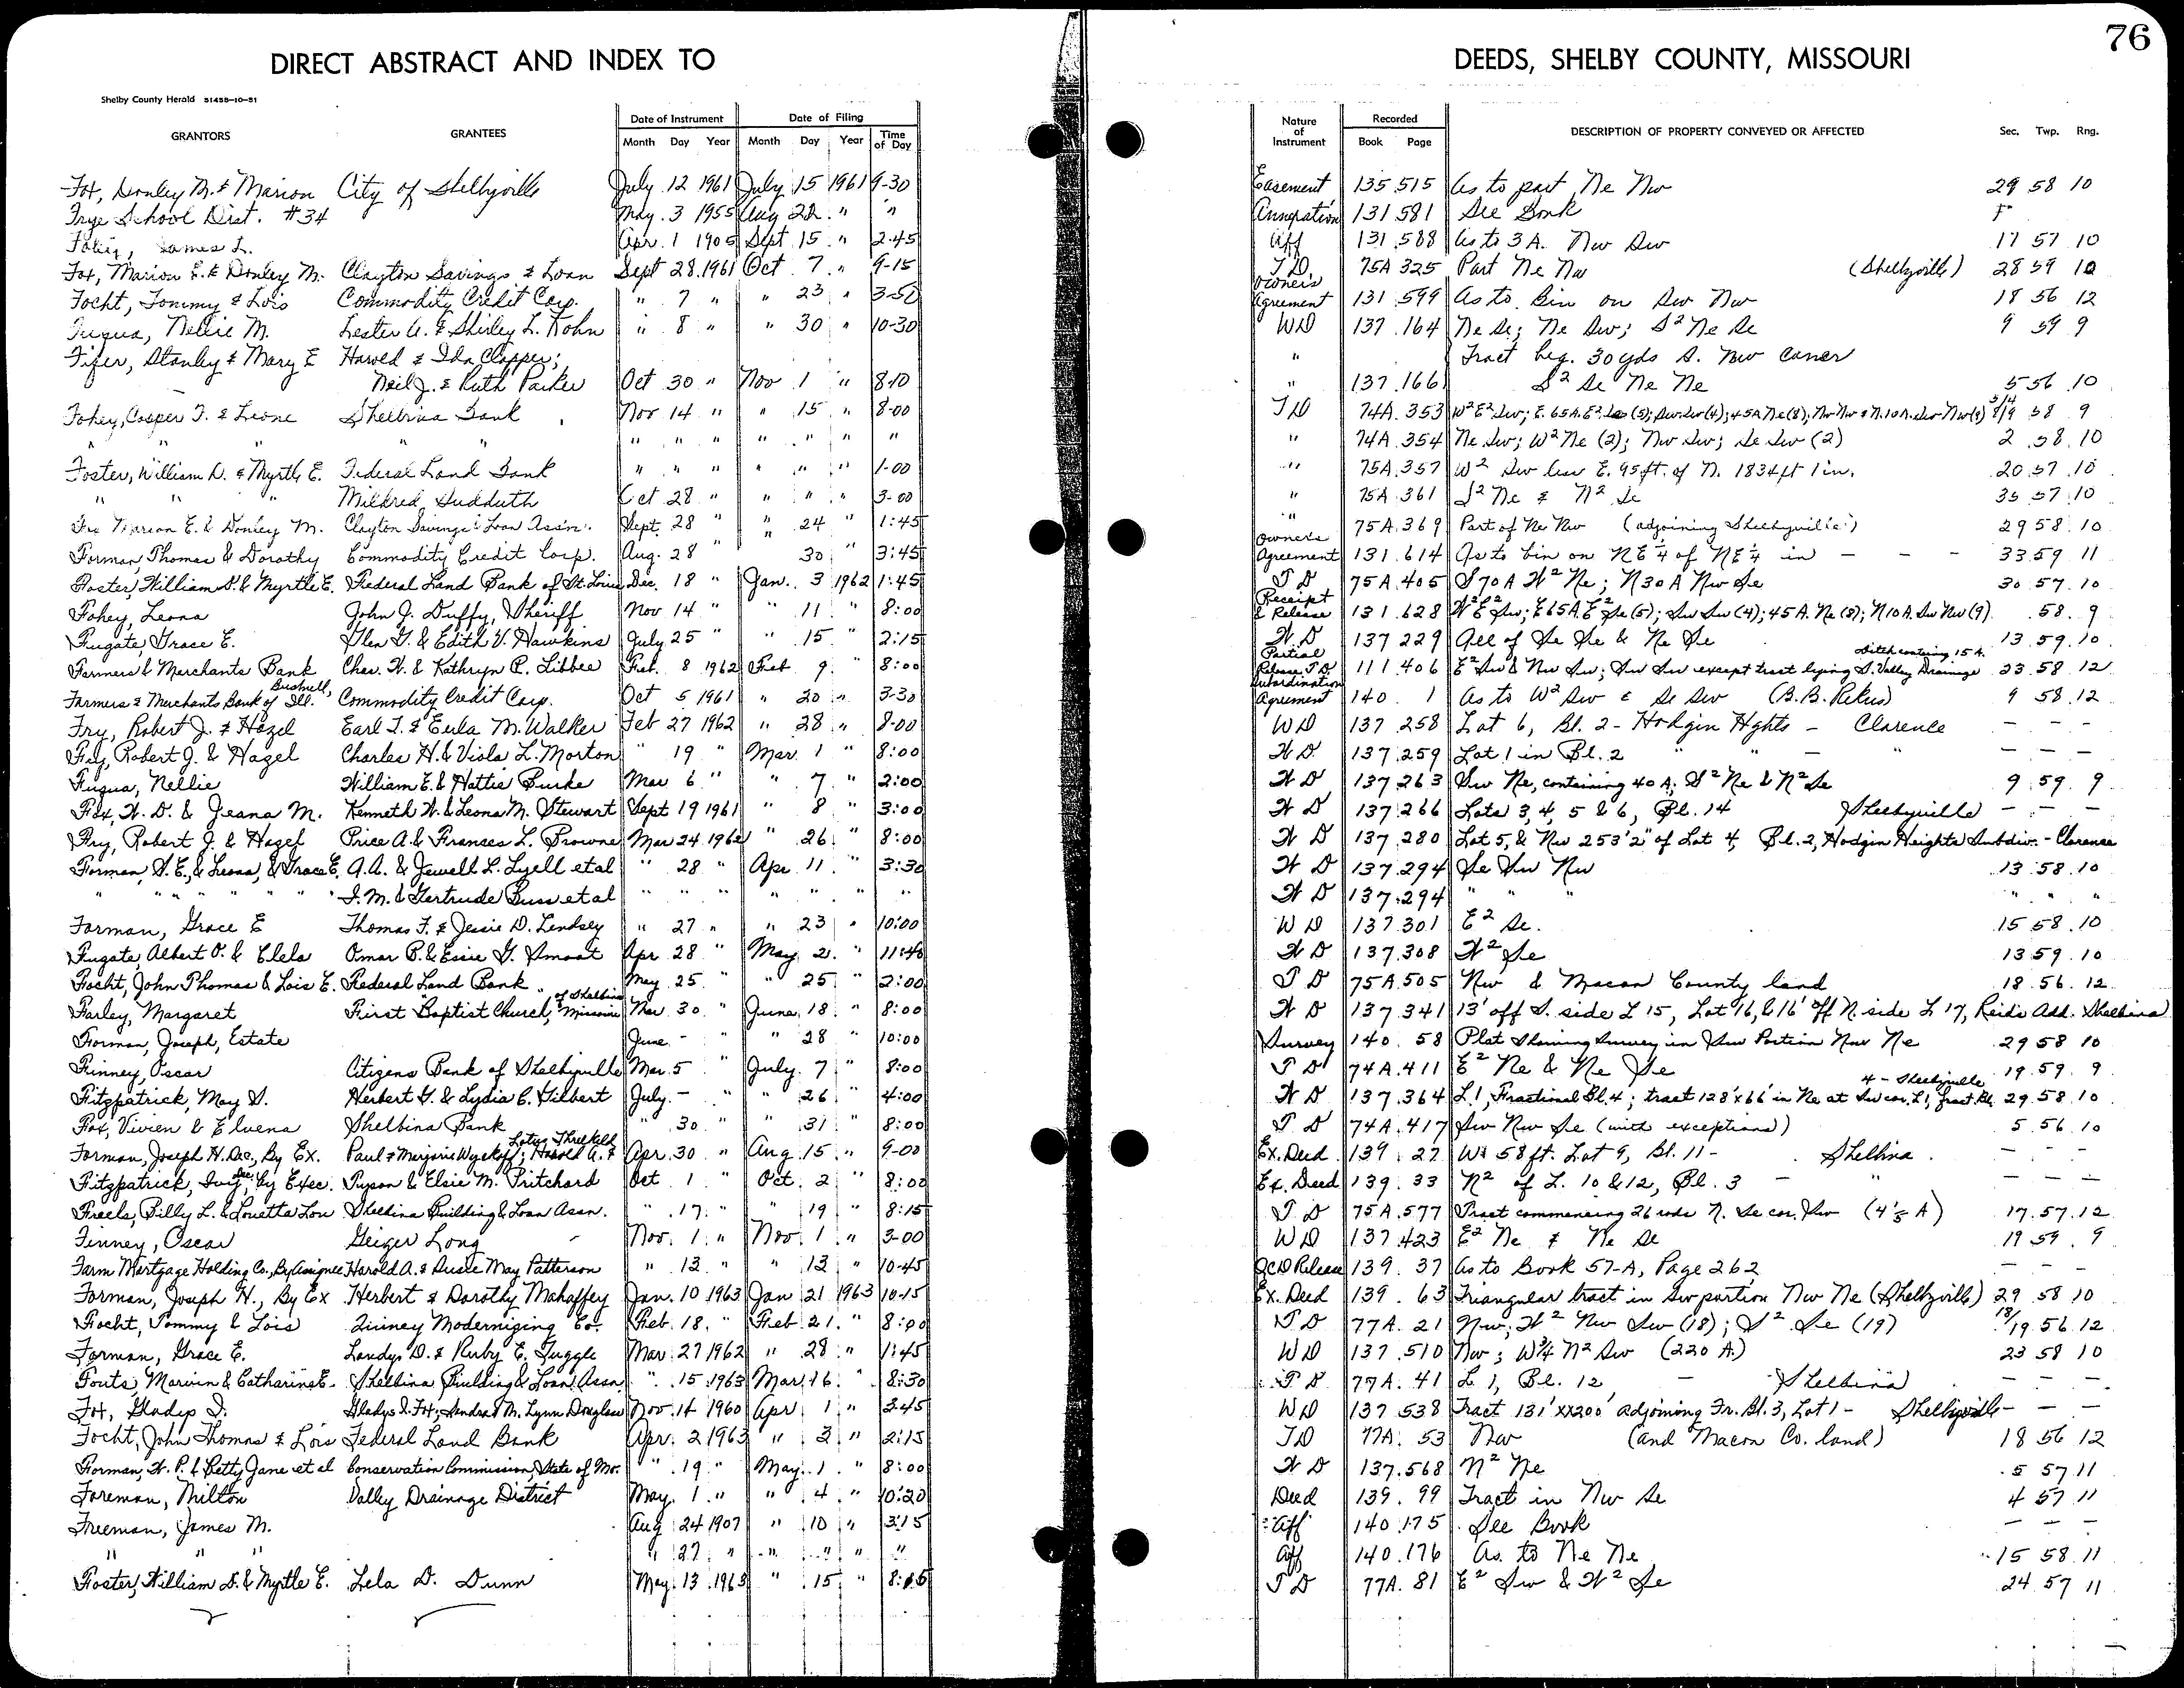 76
DIRECT ABSTRACT AND INDEX TO DEEDS, SHELBY COUNTY, MISSOURI
Shelby County Herald 51458-10-51
GRANTORS GRANTEES Date of Instrument Month Day Year Date of Filing Month Day Year Time of Day Nature of Instrument Recorded Book Page DESCRIPTION OF PROPERTY CONVEYED OR AFFECTED Sec. Twp. Rng.
Fox, Donley M. & Marion City of Shelbyville July 12 1961 July 15 1961 9-30 Easement 135 515 As to part Ne Nw 29 58 10
Frye School Dist. #34 May 3 1955 Aug 22 " " Annexation 131 581 See Book
James L. Apr. 1 1905 Sept 15 " 2-45 Aff 131 588 As to 3 A. Nw Sw 17 57 10
Fox, Marion E. & Donley M. Clayton Savings & Loan Sept 28 1961 Oct 7 " 9-15 T.D. 75A 325 Part Ne Nw (Shelbyville) 28 59 10
Focht, Tommy & Lois Commodity Credit Corp. " 7 " " 23 " 3-50 Owner's Agreement 131 599 As to Bin on Sw Nw 18 56 12
Fuqua, Nellie M. Lester A. & Shirley L. Kohn " 8 " " 30 " 10-30 WD 137 164 Ne Se; Ne Sw; S2 Ne Se 9 59 9
Fifer, Stanley & Mary E Harold & Ida Clapper; " Tract beg. 30 yds S. Nw Corner
Neil J. & Ruth Parker Oct 30 " Nov 1 " 8-10 " 137 166 S2 Se Ne Ne 5 56 10
Fohey, Casper T. & Leone Shelbina Bank Nov 14 " " 15 " 8-00 TD 74A 353 W2 E2 Sw; E. 65A. E2 Se (5); Sw Sw (4); 45A Ne (8); Nw Nw & N. 10A. Sw Nw (9) 58 9
" " " " " " " " " " " " " 74A 354 Ne Sw; W2 Ne (2); Nw Sw; Se Sw (2) 2 58 10
Foster, William D. & Myrtle E. Federal Land Bank " " " " " " 1-00 " 75A 357 W2 Sw less E. 95 ft. of N. 1834 ft 1 in. 20 57 10
" " " Mildred Hudduth Oct 28 " " " " 3-00 " 75A 361 S2 Ne & N2 Se 35 57 10
Fox Marion E. & Donley M. Clayton Savings & Loan Assn. Sept. 28 " " 24 " 1:45 " 75A 369 Part of Ne Nw (adjoining Shelbyville) 29 58 10
Forman, Thomas & Dorothy Commodity Credit Corp. Aug. 28 " " 30 " 3:45 Owner's Agreement 131 614 As to bin on NE 1/4 of NE 1/4 in - - - 33 59 11
Foster, William D. & Myrtle E. Federal Land Bank of St. Louis Dec. 18 " Jan. 3 1962 1:45 T D 75A 405 S 70 A W2 Ne; N 30 A Nw Se 30 57 10
Fohey, Leona John J. Duffy, Sheriff Nov 14 " " 11 " 8:00 Receipt & Release 131 628 W2 E2 Sw; E 65A. E2 Se (5); Sw Sw (4); 45 A. Ne (8); N 10 A. Sw Nw (9). 58 9
Fugate, Grace E. Glen G. & Edith V. Hawkins July 25 " " 15 " 2:15 W D 137 229 All of Se Se & Ne Se 13 59 10
Farmers & Merchants Bank Chas. W. & Kathryn P. Libbee Feb. 8 1962 Feb 9 " 8:00 Partial Release T.D 111 406 E2 Sw & Nw Sw; Sw Sw except tract lying S. Valley Drainage Ditch containg 15 A. 23 58 12
Farmers & Merchants Bank of Bushnell, Ill. Commodity Credit Corp. Oct 5 1961 " 20 " 3-30 Subordination Agreement 140 1 As to W2 Sw & Se Sw 9 58 12
Fry, Robert J. & Hazel Earl T. & Eula M. Walker Feb 27 1962 " 28 " 8-00 WD 137 258 Lot 6, Bl. 2 - Hodgin Hghts - Clarence - - -
Fry, Robert J. & Hazel Charles H. & Viola L. Morton " 19 " Mar 1 " 8:00 W D 137 259 Lot 1 in Bl. 2 " " - " - - -
Fuqua, Nellie William E. & Hattie Burke Mar 6 " " 7 " 2:00 W D 137 263 Sw Ne, containing 40 A; S2 Ne & N2 Se 9 59 9
Fox, W. D. & Jeana M. Kenneth W. & Leona M. Stewart Sept 19 1961 " 8 " 3:00 W D 137 266 Lots 3, 4, 5 & 6, Bl. 14 Shelbyville - - -
Fry, Robert J. & Hazel Price A. & Frances L. Browne Mar 24 1962 " 26 " 8:00 W D 137 280 Lot 5, & Nw 253'2" of Lot 4, Bl. 2, Hodgin Heights Subdiv. - Clarence
Forman, W. E., & Leona, & Grace E. A. A. & Jewell L. Lyell et al " 28 " Apr. 11 " 3:30 W D 137 294 Se Sw Nw 13 58 10
" " " " " " I. M. & Gertrude Buss et al " " " " " " " W D 137 294 " " " " "
Forman, Grace E Thomas F. & Jessie D. Lendsey " 27 " " 23 " 10:00 W D 137 301 E2 Se. 15 58 10
Fugate, Albert O. & Clela Omar B. & Essie G. Smoot Apr 28 " May 2 " 11:40 W D 137 308 W2 Se 13 59 10
Focht, John Thomas & Lois E. Federal Land Bank May 25 " " 25 " 2:00 T D 75A 505 Nw & Macon County land 18 56 12
Farley, Margaret First Baptist Church, of Shelbina Missouri Mar 30 " June 18 " 8:00 W D 137 341 13' off S. side L 15, Lot 16, & 16' off N. side L 17, Reid's Add. Shelbina
Forman, Joseph, Estate June - " " 28 " 10:00 Survey 140 58 Plat Showing Survey in Sw Portion Nw Ne 29 58 10
Finney, Oscar Citizens Bank of Shelbyville Mar. 5 " July 7 " 8:00 T D 74A 411 E2 Ne & Ne Se 19 59 9
Fitzpatrick, May S. Herbert G. & Lydia C. Gilbert July - " " 26 " 4:00 W D 137 364 L 1, Fractional Bl. 4; tract 128'x66' in Ne at Sw cor. L 1, fract. Bl. 4 - Shelbyville 29 58 10
Fox, Vivien & Elvena Shelbina Bank " 30 " " 31 " 8:00 T D 74A 417 Sw Nw Se (with exceptions) 5 56 10
Forman, Joseph H. Dec., By Ex. Paul & Marjorie Wyckoff; Harold A. & Lotus Threlkeld Apr. 30 " Aug 15 " 9-00 Ex. Deed 139 27 W 58 ft. Lot 9, Bl. 11 - Shelbina - - -
Fitzpatrick, Dec., by Exec. Tyson & Elsie M. Pritchard Oct 1 " Oct. 2 " 8:00 Ex. Deed 139 33 N2 of L. 10 & 12, Bl. 3 - " - - -
Freels, Billy L. & Louetta Lou Shelbina Building & Loan Assn. " 17 " " 19 " 8:15 T D 75A 577 Tract commencing 26 rods N. Se cor. Sw (4 1/5 A) 17 57 12
Finney, Oscar Geiger Long Nov. 1 " Nov. 1 " 3-00 WD 137 423 E2 Ne & Ne Se 19 59 9
Farm Mortgage Holding Co., By Assignee Harold A. & Susie May Patterson " 13 " " 13 " 10-45 QCD Release 139 37 As to Book 57-A, Page 262 - - -
Forman, Joseph H., By Ex Herbert & Dorothy Mahaffey Jan. 10 1963 Jan 21 1963 10-15 Ex. Deed 139 63 Triangular tract in Sw portion Nw Ne (Shelbyville) 29 58 10
Focht, Tommy & Lois Quincy Modernizing Co. Feb. 18 " Feb 21 " 8:00 T D 77A 21 Nw; W2 Nw Sw (18); S2 Se (19) 18/19 56 12
Forman, Grace E. Landys D. & Ruby E. Tuggle Mar 27 1962 " 28 " 1:45 WD 137 510 Nw; W 3/4 N2 Sw (220 A.) 23 58 10
Fouts, Marvin & Catharine E. Shelbina Building & Loan Assn. " 15 1963 Mar 16 " 8:30 T D 77A 41 L 1, Bl. 12 - Shelbina - - -
Fox, Gladys I. Gladys I. Fox; Sandra & M. Lynn Douglass Nov. 14 1960 Apr 1 " 3:45 WD 137 538 Tract 131'xx200' adjoining Fr. Bl. 3, Lot 1 - Shelbyville - - -
Focht, John Thomas & Lois Federal Land Bank Apr. 2 1963 " 3 " 2:15 TD 77A 53 Nw (and Macon Co. land) 18 56 12
Forman, W. P. & Betty Jane et al Conservation Commission, State of Mo. " 19 " May 1 " 8:00 W D 137 568 N2 Ne 5 57 11
Foreman, Milton Valley Drainage District May 1 " " 4 " 10:20 Deed 139 99 Tract in Nw Se 4 57 11
Freeman, James M. Aug 24 1907 " 10 " 3:15 Aff 140 175 See Book - - -
" " " " 27 " " " " " Aff 140 176 As to Ne Ne 15 58 11
Foster, William D. & Myrtle E. Lela D. Dunn May 13 1963 " 15 " 8:15 T D 77A 81 E2 Sw & W2 Se 24 57 11